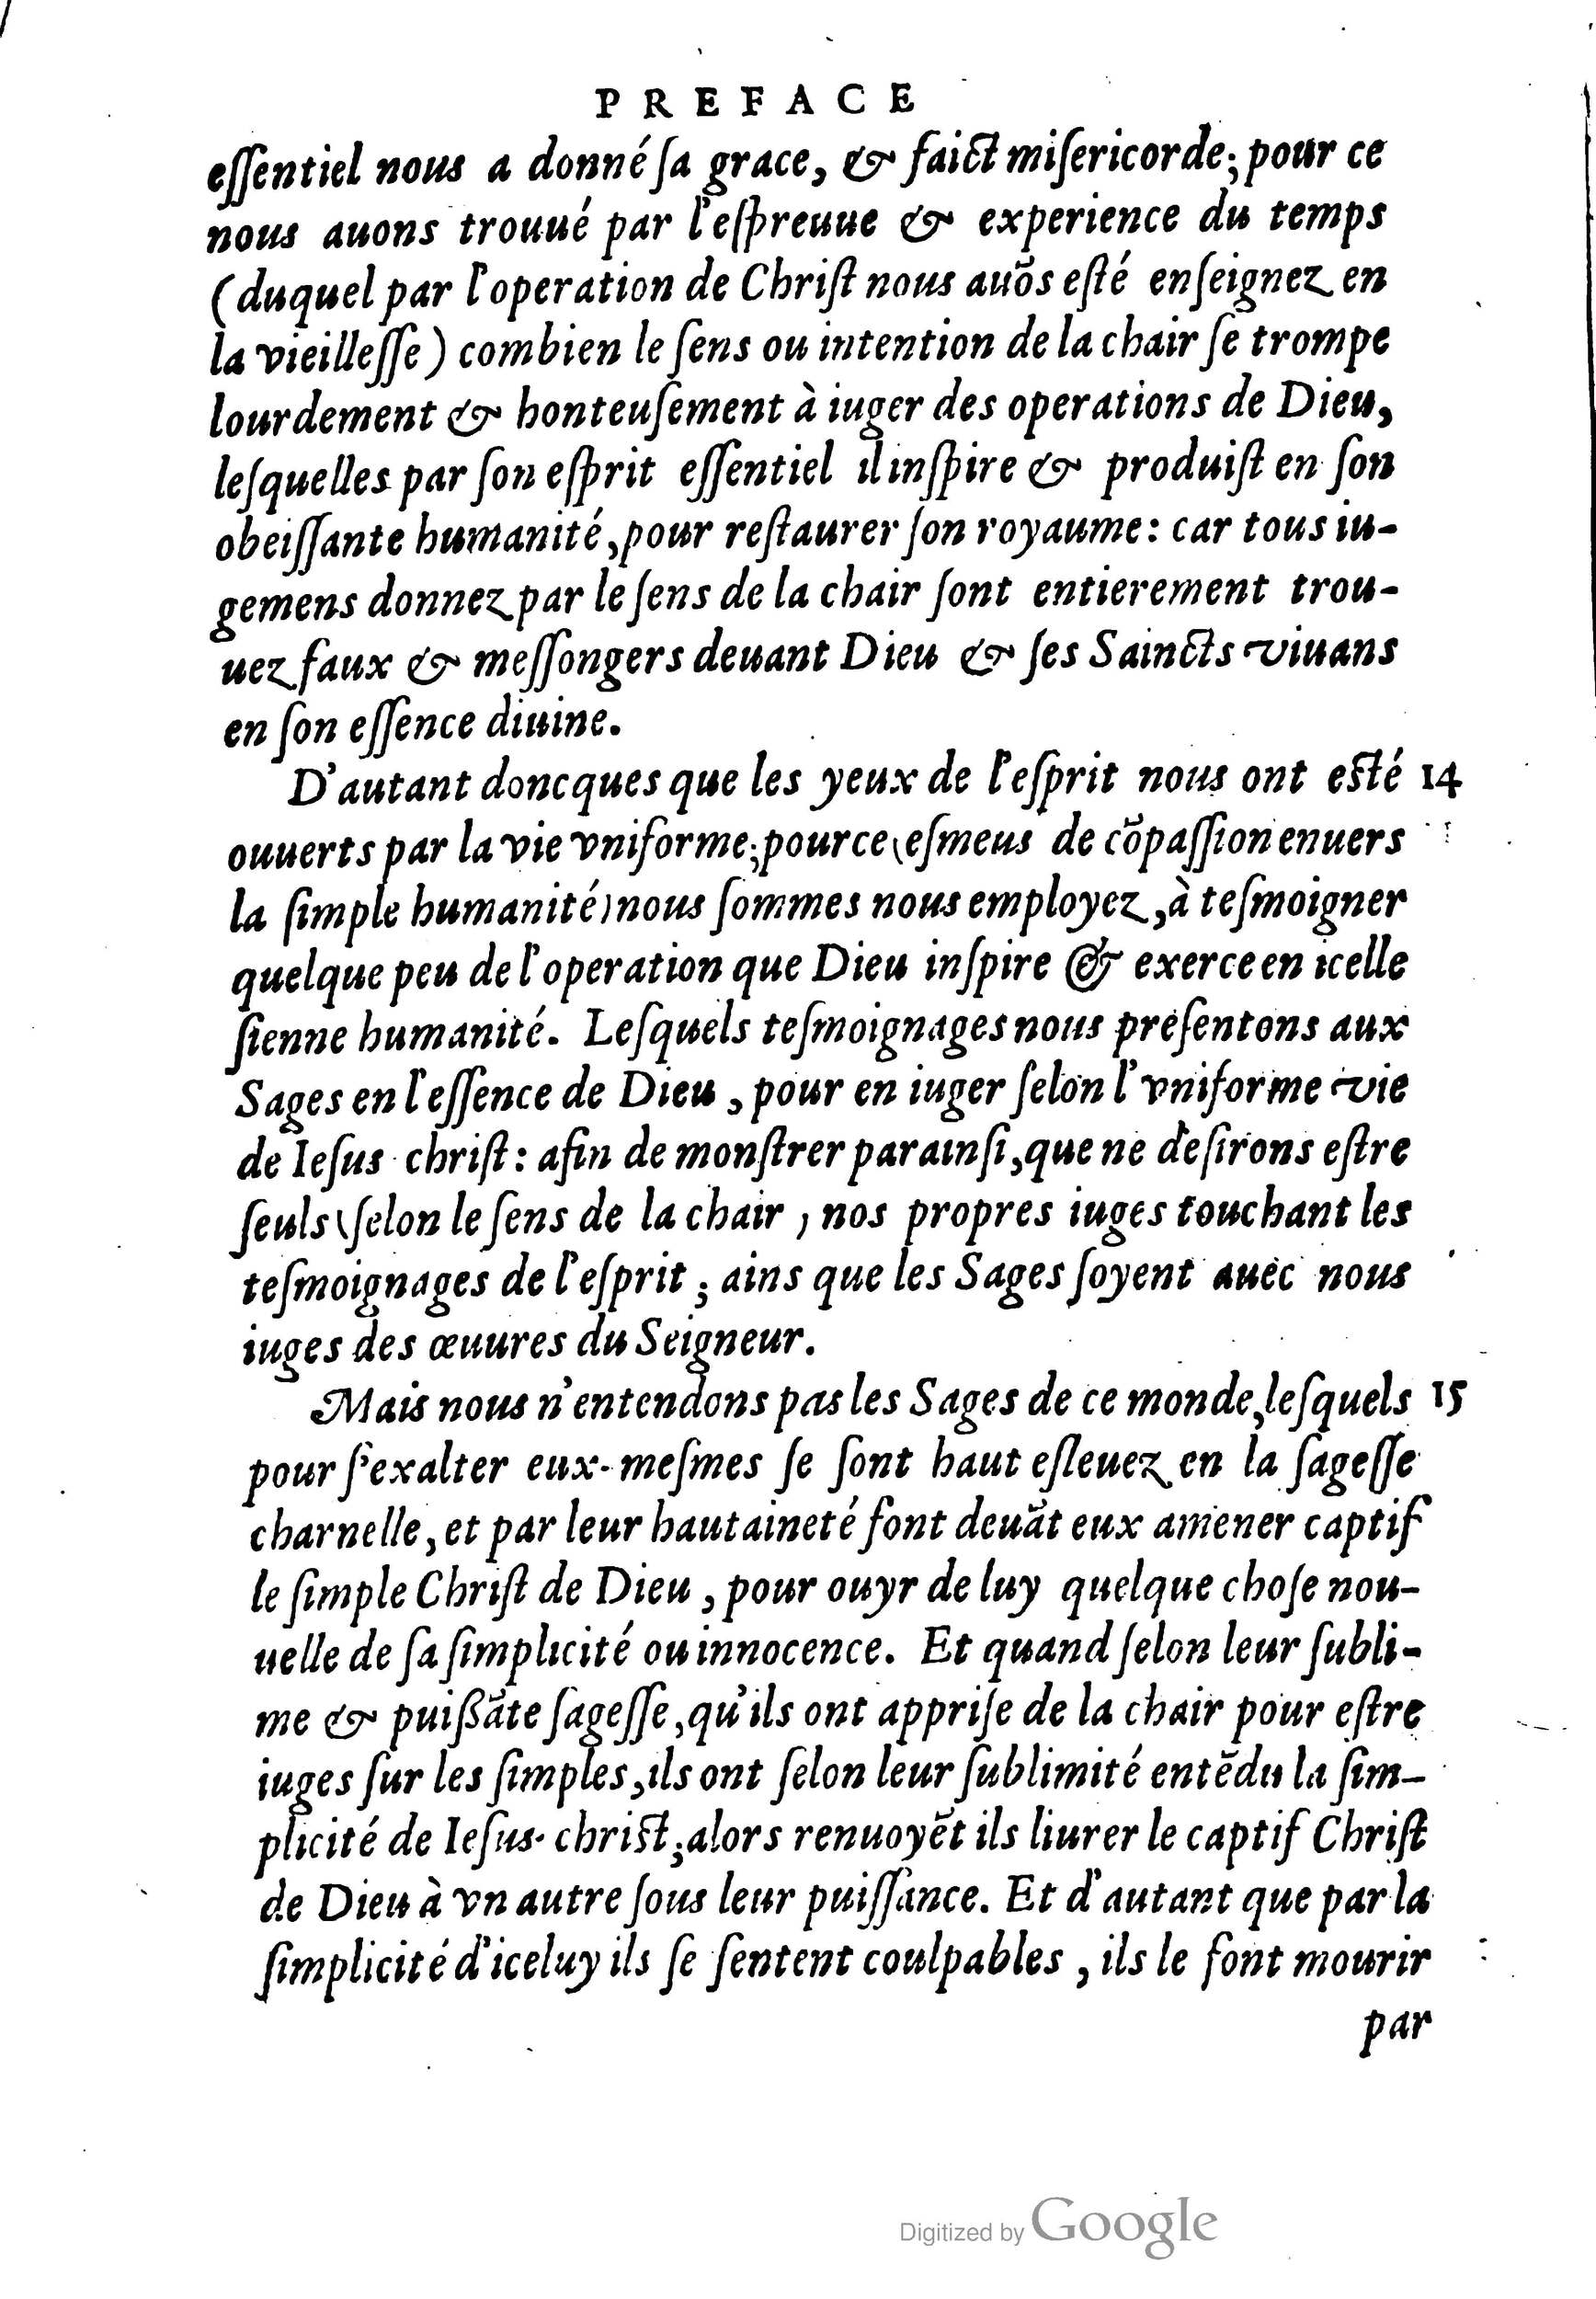 PREFACE
eſſentiel nous a donné ſa grace, & faict miſericorde; pour ce
nous auons trouué par l'eſpreuue & experience du temps
(duquel par l'operation de Chriſt nous auõs eſté enſeignez en
la vieilleſſe) combien le ſens ou intention de la chair ſe trompe
lourdement & honteuſement à iuger des operations de Dieu,
leſquelles par ſon eſprit eſſentiel il inſpire & produiſt en ſon
obeiſſante humanité, pour reſtaurer ſon royaume: car tous iu-
gemens donnez par le ſens de la chair ſont entierement trou-
uez faux & meſſongers deuant Dieu & ſes Saincts viuans
en ſon eſſence diuine.
D'autant doncques que les yeux de l'eſprit nous ont eſté 14
ouuerts par la vie vniforme; pource (eſmeus de cõpaſſion enuers
la ſimple humanité) nous ſommes nous employez, à teſmoigner
quelque peu de l'operation que Dieu inſpire & exerce en icelle
ſienne humanité. Leſquels teſmoignages nous preſentons aux
Sages en l'eſſence de Dieu, pour en iuger ſelon l'vniforme vie
de Ieſus chriſt: afin de monſtrer parainſi, que ne deſirons eſtre
ſeuls (ſelon le ſens de la chair) nos propres iuges touchant les
teſmoignages de l'eſprit; ains que les Sages ſoyent auec nous
iuges des œuures du Seigneur.
Mais nous n'entendons pas les Sages de ce monde, leſquels 15
pour ſ'exalter eux-meſmes ſe ſont haut eſleuez en la ſageſſe
charnelle, et par leur hautaineté font deuãt eux amener captif
le ſimple Chriſt de Dieu, pour ouyr de luy quelque choſe nou-
uelle de ſa ſimplicité ou innocence. Et quand ſelon leur ſubli-
me & puißãte ſageſſe, qu'ils ont appriſe de la chair pour eſtre
iuges ſur les ſimples, ils ont ſelon leur ſublimité entẽdu la ſim-
plicité de Ieſus-chriſt; alors renuoyẽt ils liurer le captif Chriſt
de Dieu à vn autre ſous leur puiſſance. Et d'autant que par la
ſimplicité d'iceluy ils ſe ſentent coulpables, ils le font mourir
par
Digitized by Google